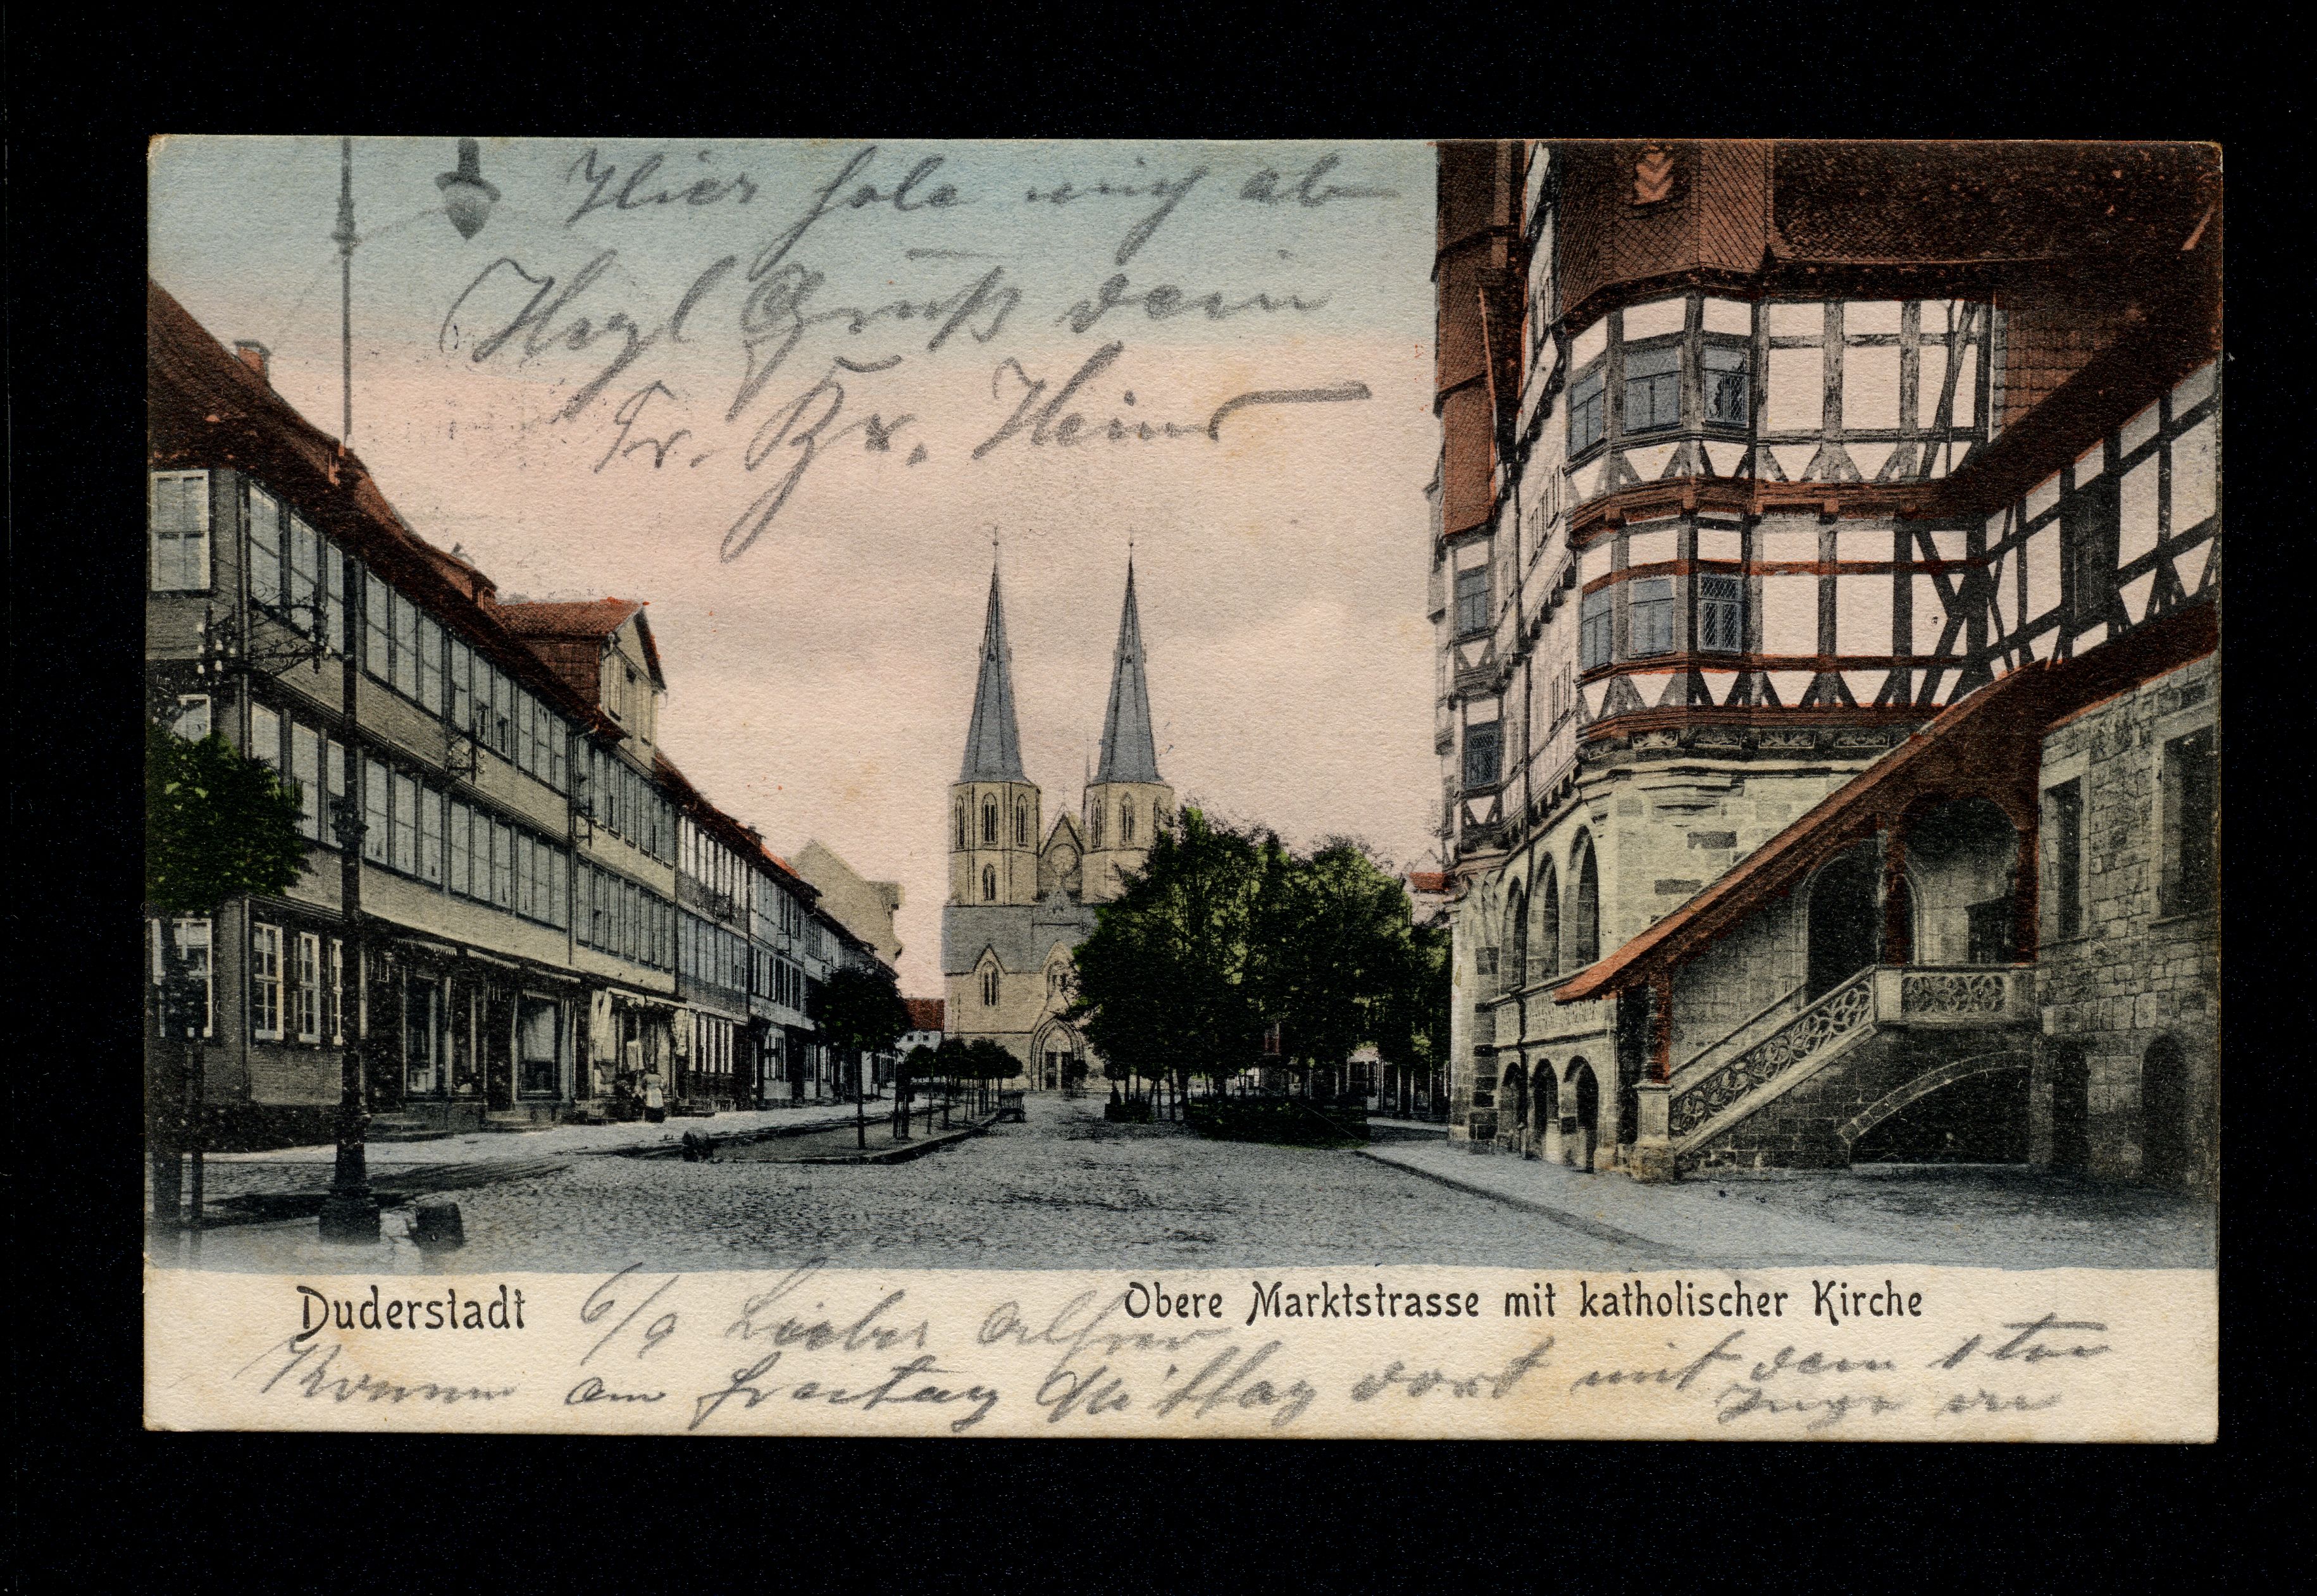 Hier hole mich ab
Hrzl Gruß dein
Fr. Br. Heinr
Duderstadt
Obere Marktstrasse mit katholischer Kirche
6/9 Lieber Alfred
Komm am freitag Mittag dort mit dem 1 ten
Zuge an